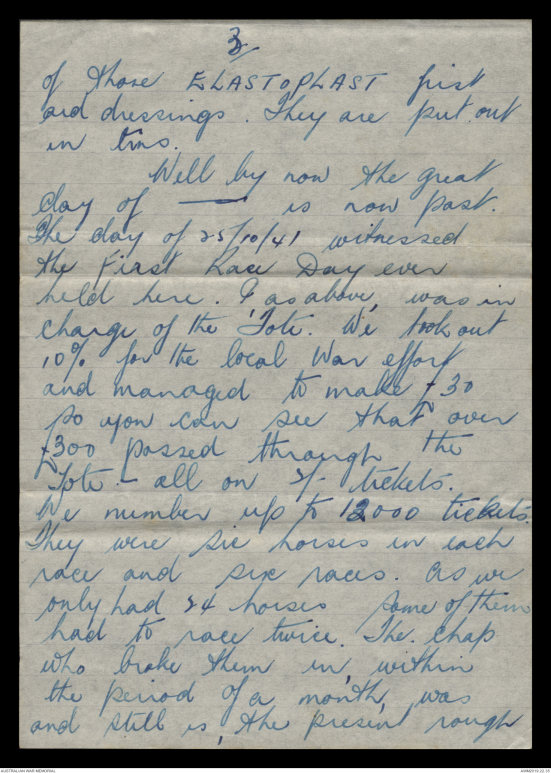 3
of those ELASTOPLAST first
aid dressings. They are put out
in tins.
Well by now the great
day of — is now past.
The day of 25/10/41 witnessed
the First Race Day ever
held here. I as above, was in
charge of the 'Tote. We took out
10% for the local War effort
and managed to make £30
so you can see that over
£300 passed through the
Tote - all on 2/- tickets.
We number up to 12000 tickets.
They were six horses in each
race and six races. As we
only had 24 horses some of them
had to race twice. The chap
who broke them in, within
the period of a month, was
and still is, the present rough
AUSTRALIAN WAR MEMORIAL